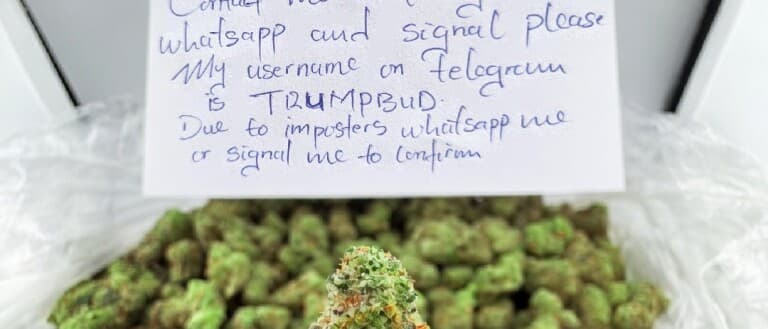 Contact me
whatsapp and signal please
My username on Telegram
is TRUMPBUD.
Due to imposters whatsapp me
or signal me to confirm